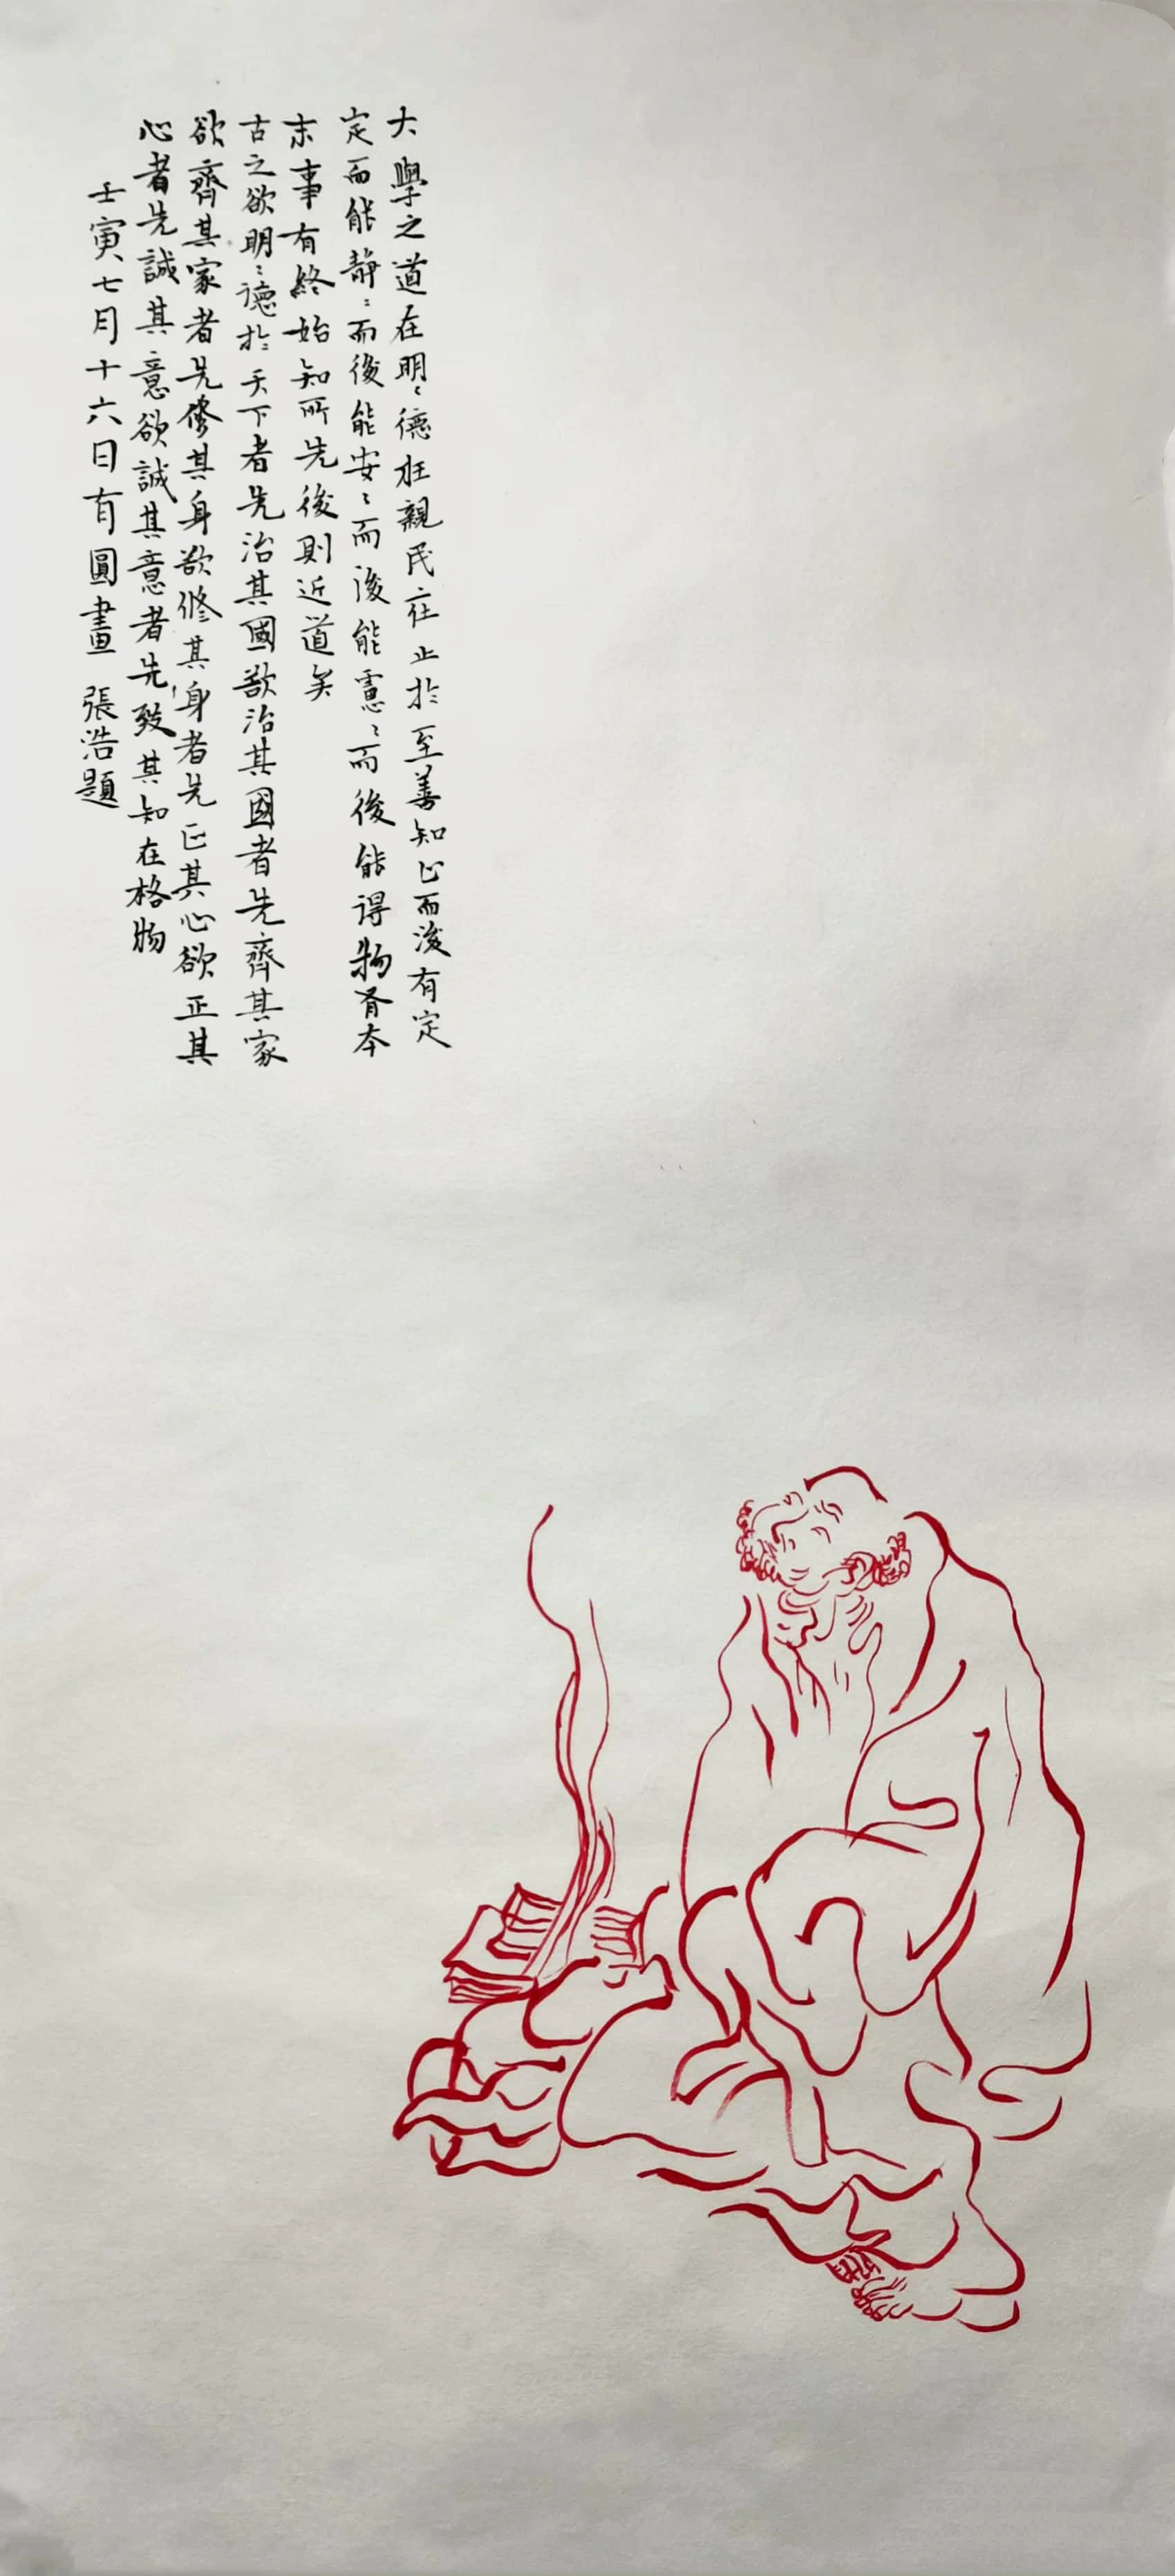 大學之道在明〻德在親民在止於至善知止而後有定
定而能静〻而後能安〻而後能慮〻而後能得物有本
末事有終始知所先後則近道矣
古之欲明〻德於天下者先治其國欲治其國者先齊其家
欲齊其家者先修其身欲修其身者先正其心欲正其
心者先誠其意欲誠其意者先致其知在格物
壬寅七月十六日有圓畫 張浩題